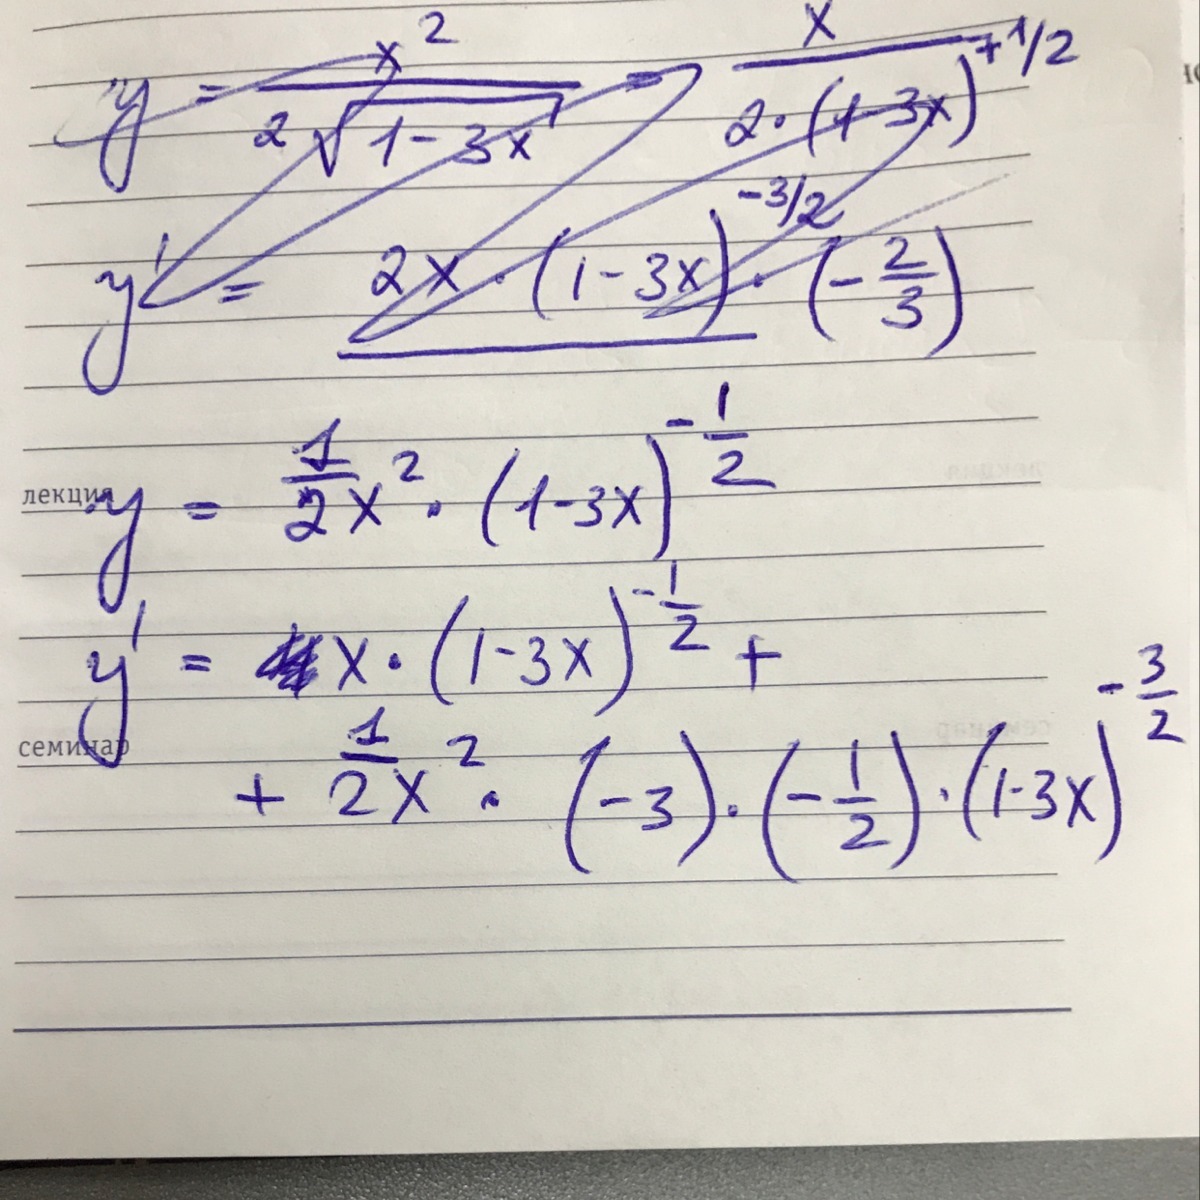 y = x² / 2√(1-3x) = x / 2·(1-3x)^(+1/2)
y' = 2x·(1-3x)^(-3/2)·(-2/3)
лекция
y = 1/2 x²·(1-3x)^(-1/2)
y' = x·(1-3x)^(-1/2) +
семинар
+ 1/2 x²·(-3)·(-1/2)·(1-3x)^(-3/2)